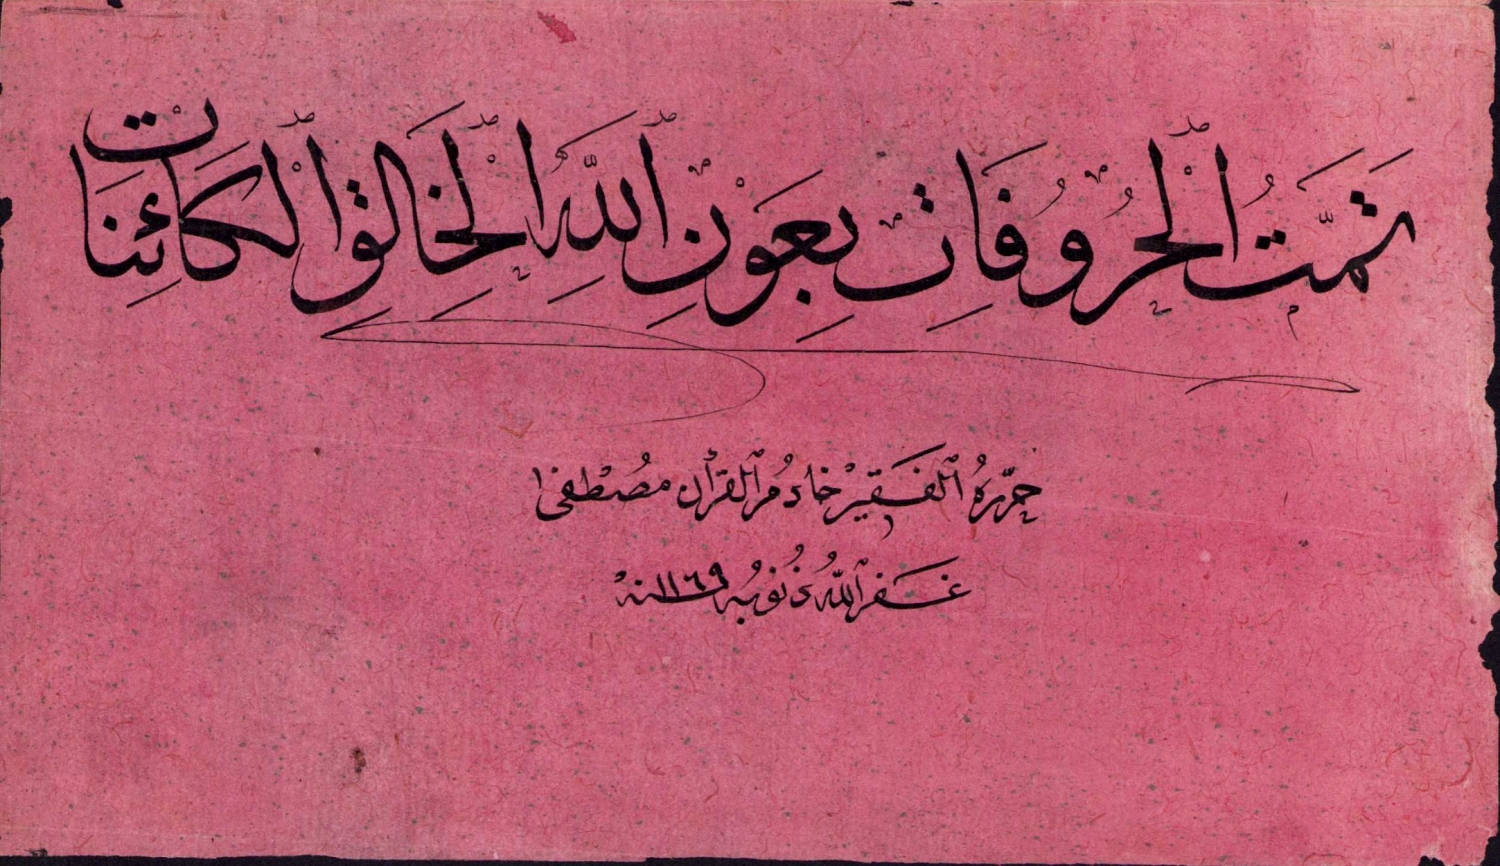 تَمَّتُ الْحُرُوفَاتِ بِعَوْنِ اللَّهِ الْخَالِقِ الْكَائِنَات
حرّره الفقير خادم القرأن مصطفى
غفر الله ذنوبه سنة ١١٦٩